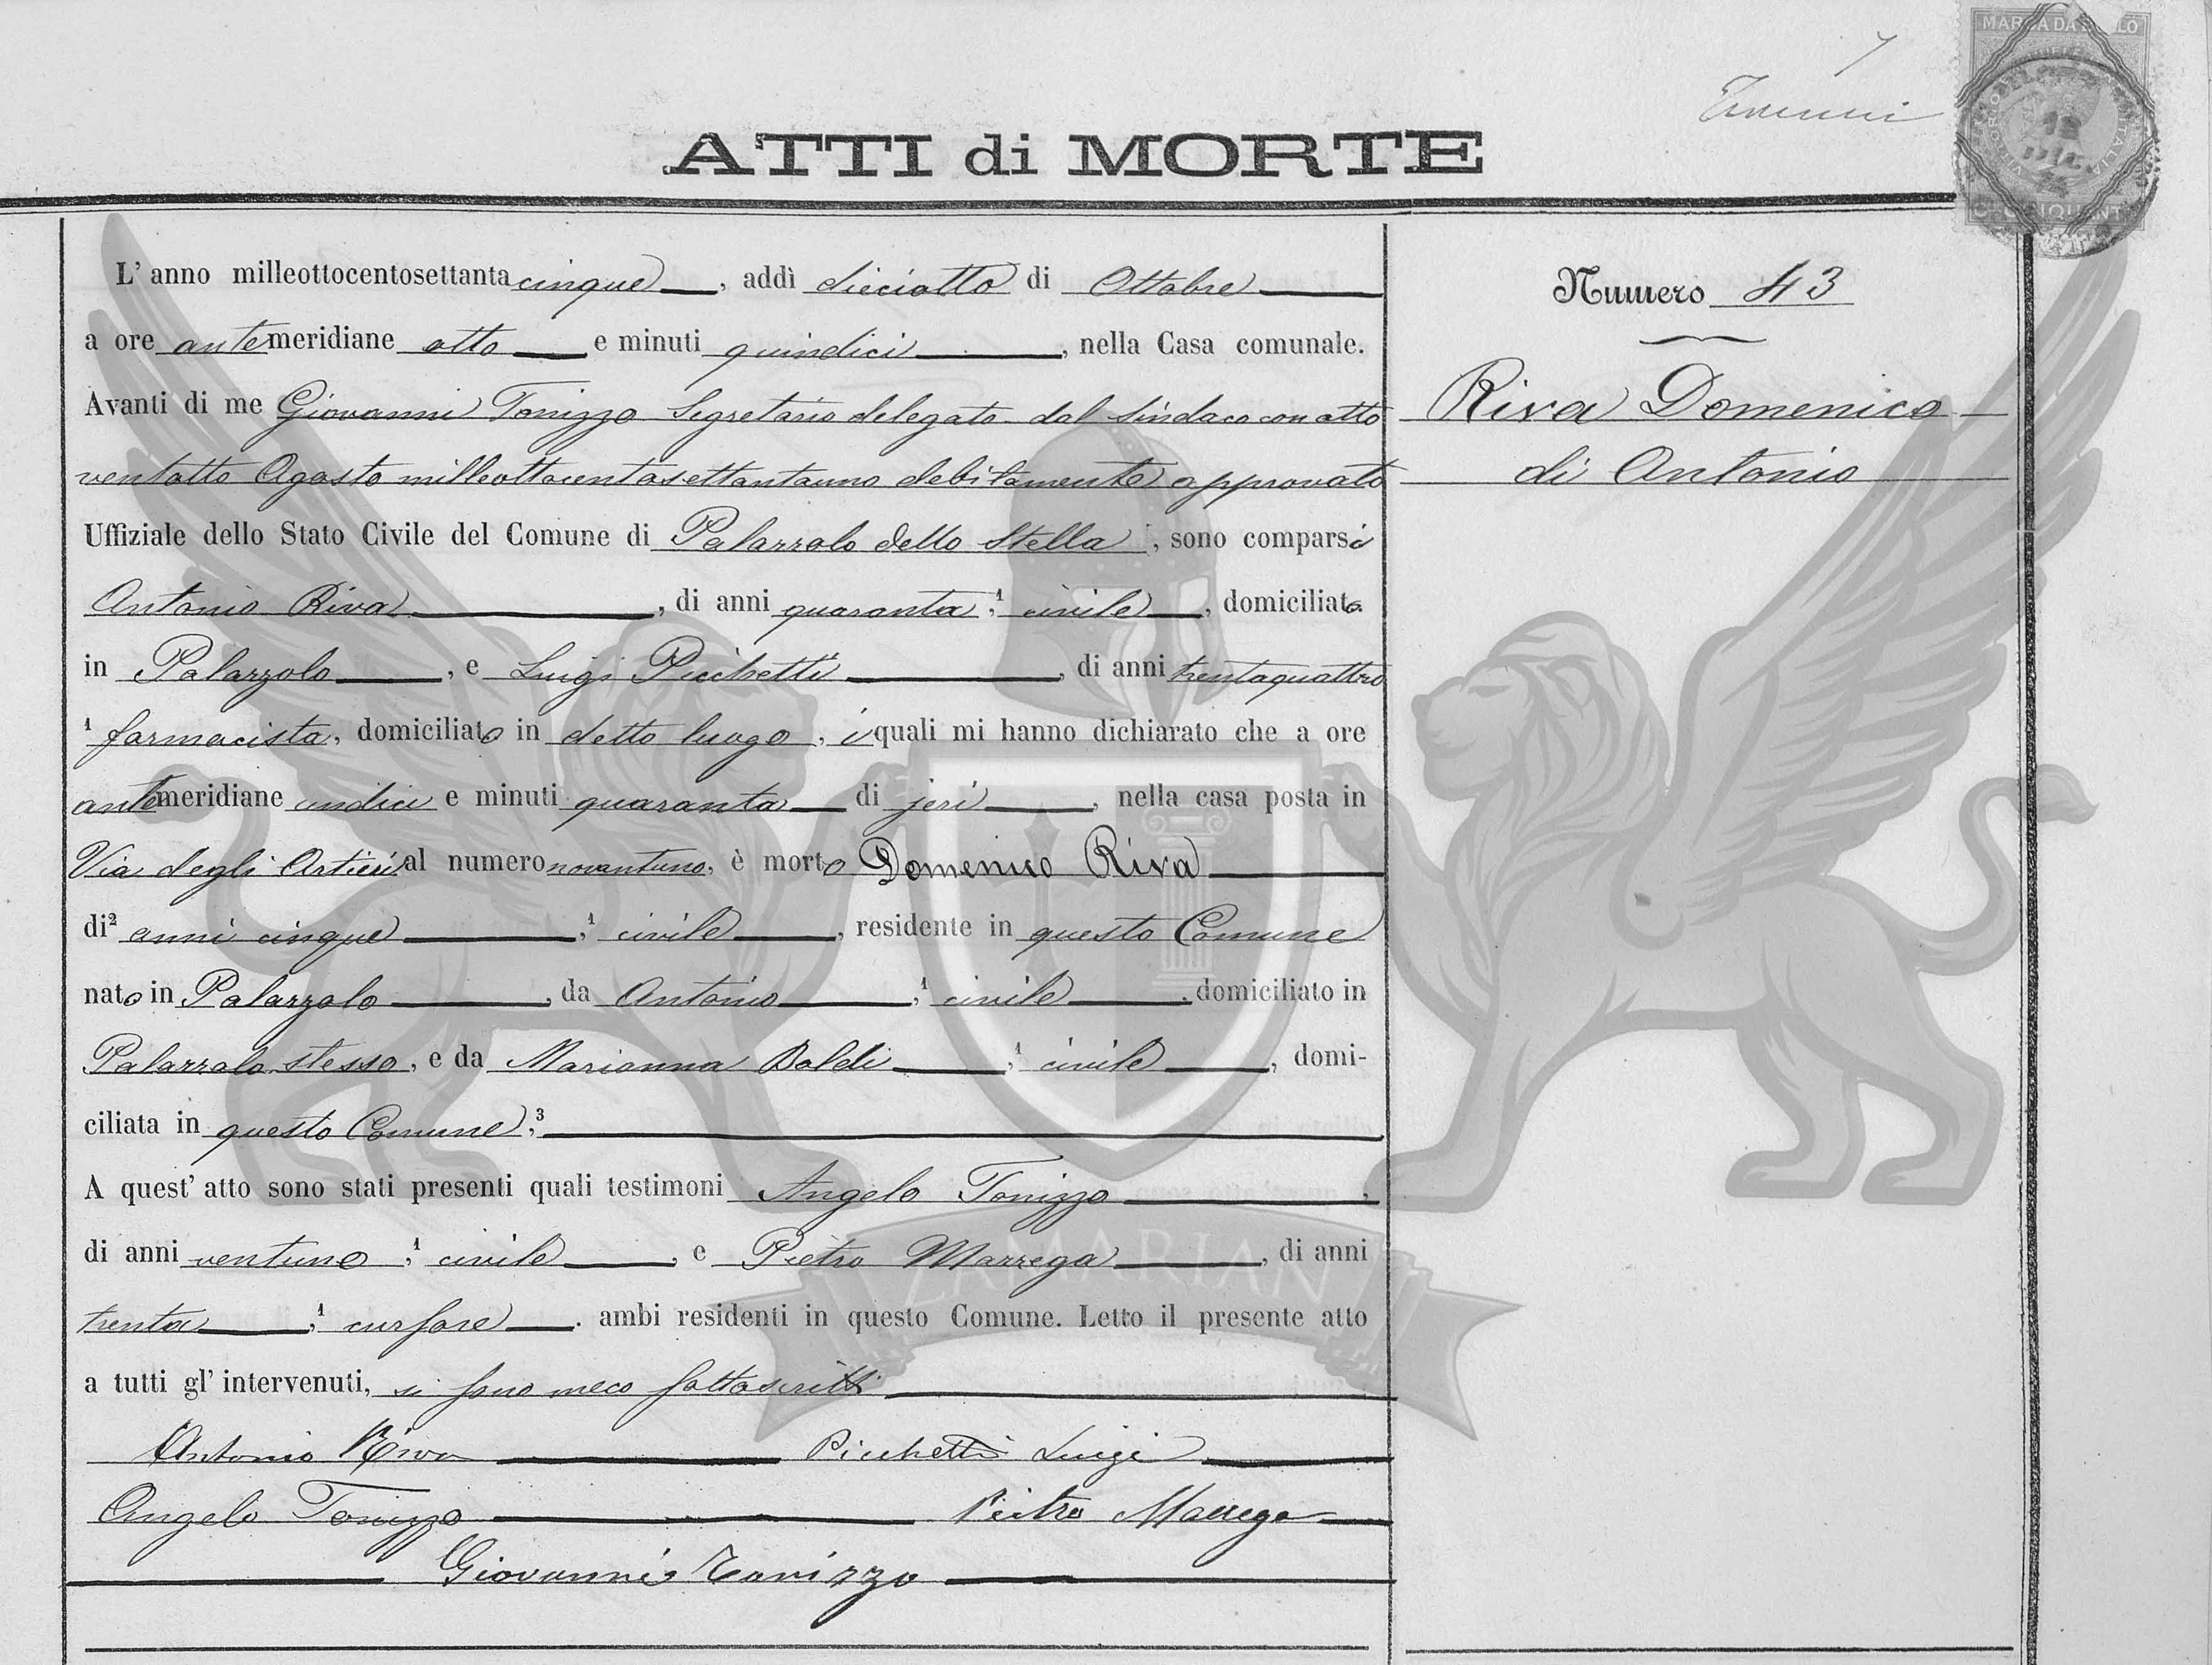 MARCA DA BOLLO
12
DIC
ATTI di MORTE
L' anno milleottocentosettanta cinque, addì dieciotto di Ottobre
a ore antemeridiane otto e minuti quindici, nella Casa comunale.
Avanti di me Giovanni Tonizzo Segretario delegato dal Sindaco con atto
ventotto Agosto milleottocentosettantauno debitamente approvato
Uffiziale dello Stato Civile del Comune di Palazzolo dello Stella, sono comparsi
Antonio Riva, di anni quaranta,¹ civile, domiciliato
in Palazzolo, e Luigi Picchetti, di anni trentaquattro
¹ farmacista, domiciliato in detto luogo, i quali mi hanno dichiarato che a ore
antemeridiane undici e minuti quaranta di jeri, nella casa posta in
Via degli Artieri al numero novantuno, è morto Domenico Riva
di² anni cinque,¹ civile, residente in questo Comune
nato in Palazzolo, da Antonio,¹ civile, domiciliato in
Palazzolo stesso, e da Marianna Baldi,¹ civile, domi-
ciliata in questo Comune,³
A quest' atto sono stati presenti quali testimoni Angelo Tonizzo,
di anni ventuno,¹ civile, e Pietro Marrega, di anni
trenta,¹ cursore. ambi residenti in questo Comune. Letto il presente atto
a tutti gl' intervenuti, si sono meco sottoscritti
Antonio Riva Picchetti Luigi
Angelo Tonizzo Pietro Marrega
Giovanni Tonizzo
Numero 43
Riva Domenico
di Antonio
MARIAN